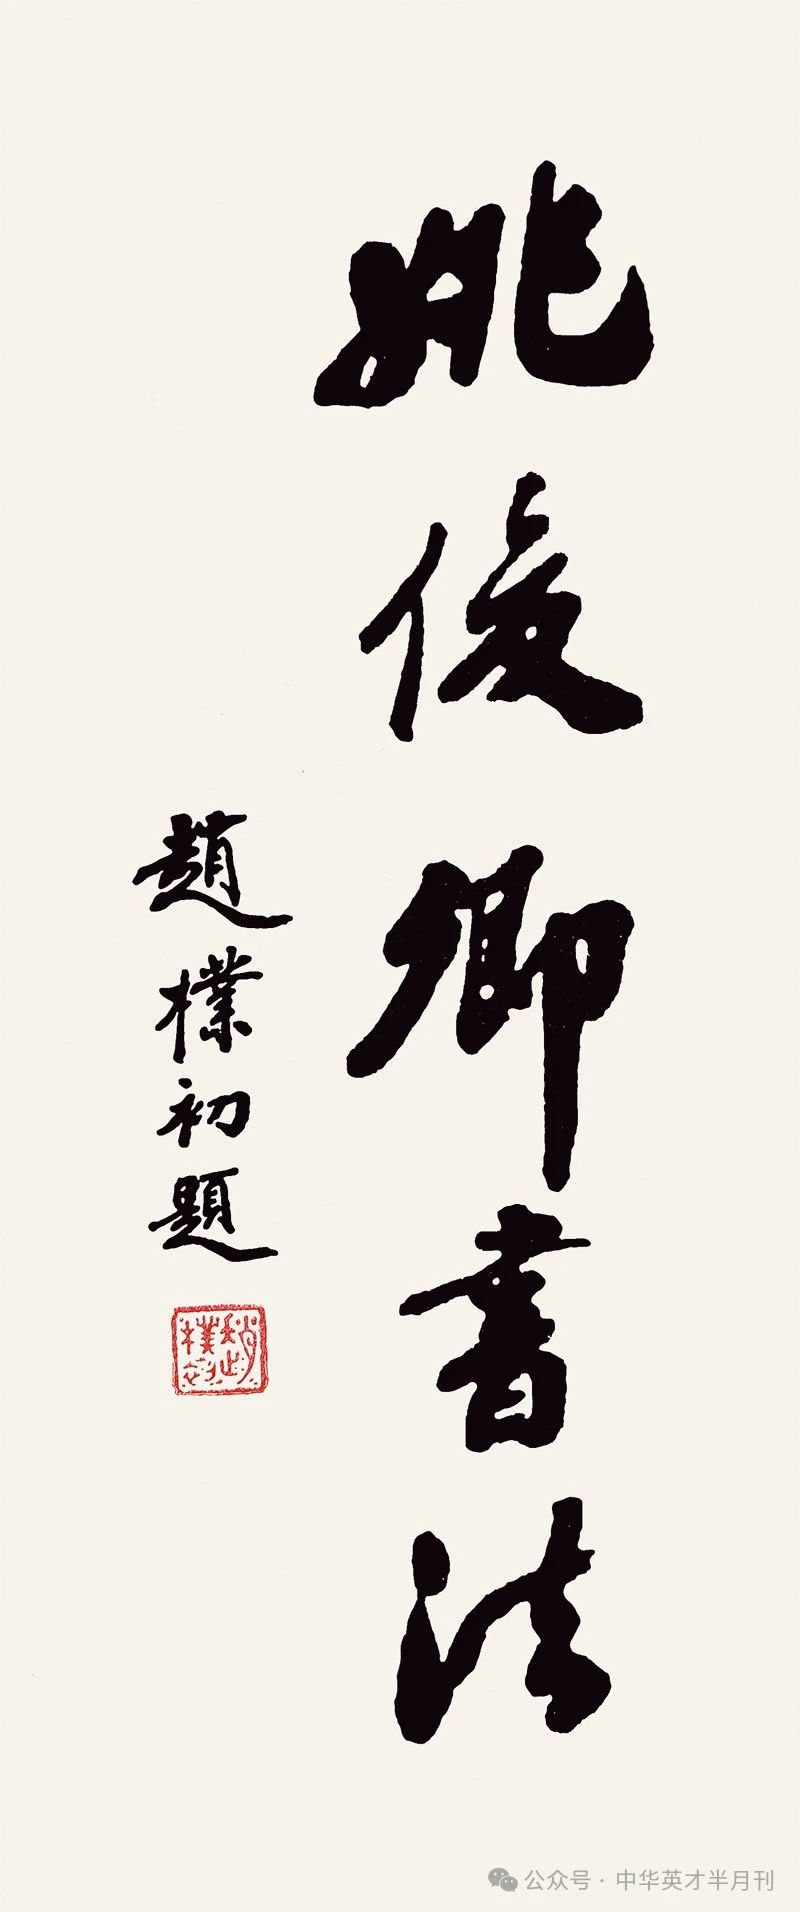 姚俊卿書法
趙樸初題
趙樸初
公众号 · 中华英才半月刊